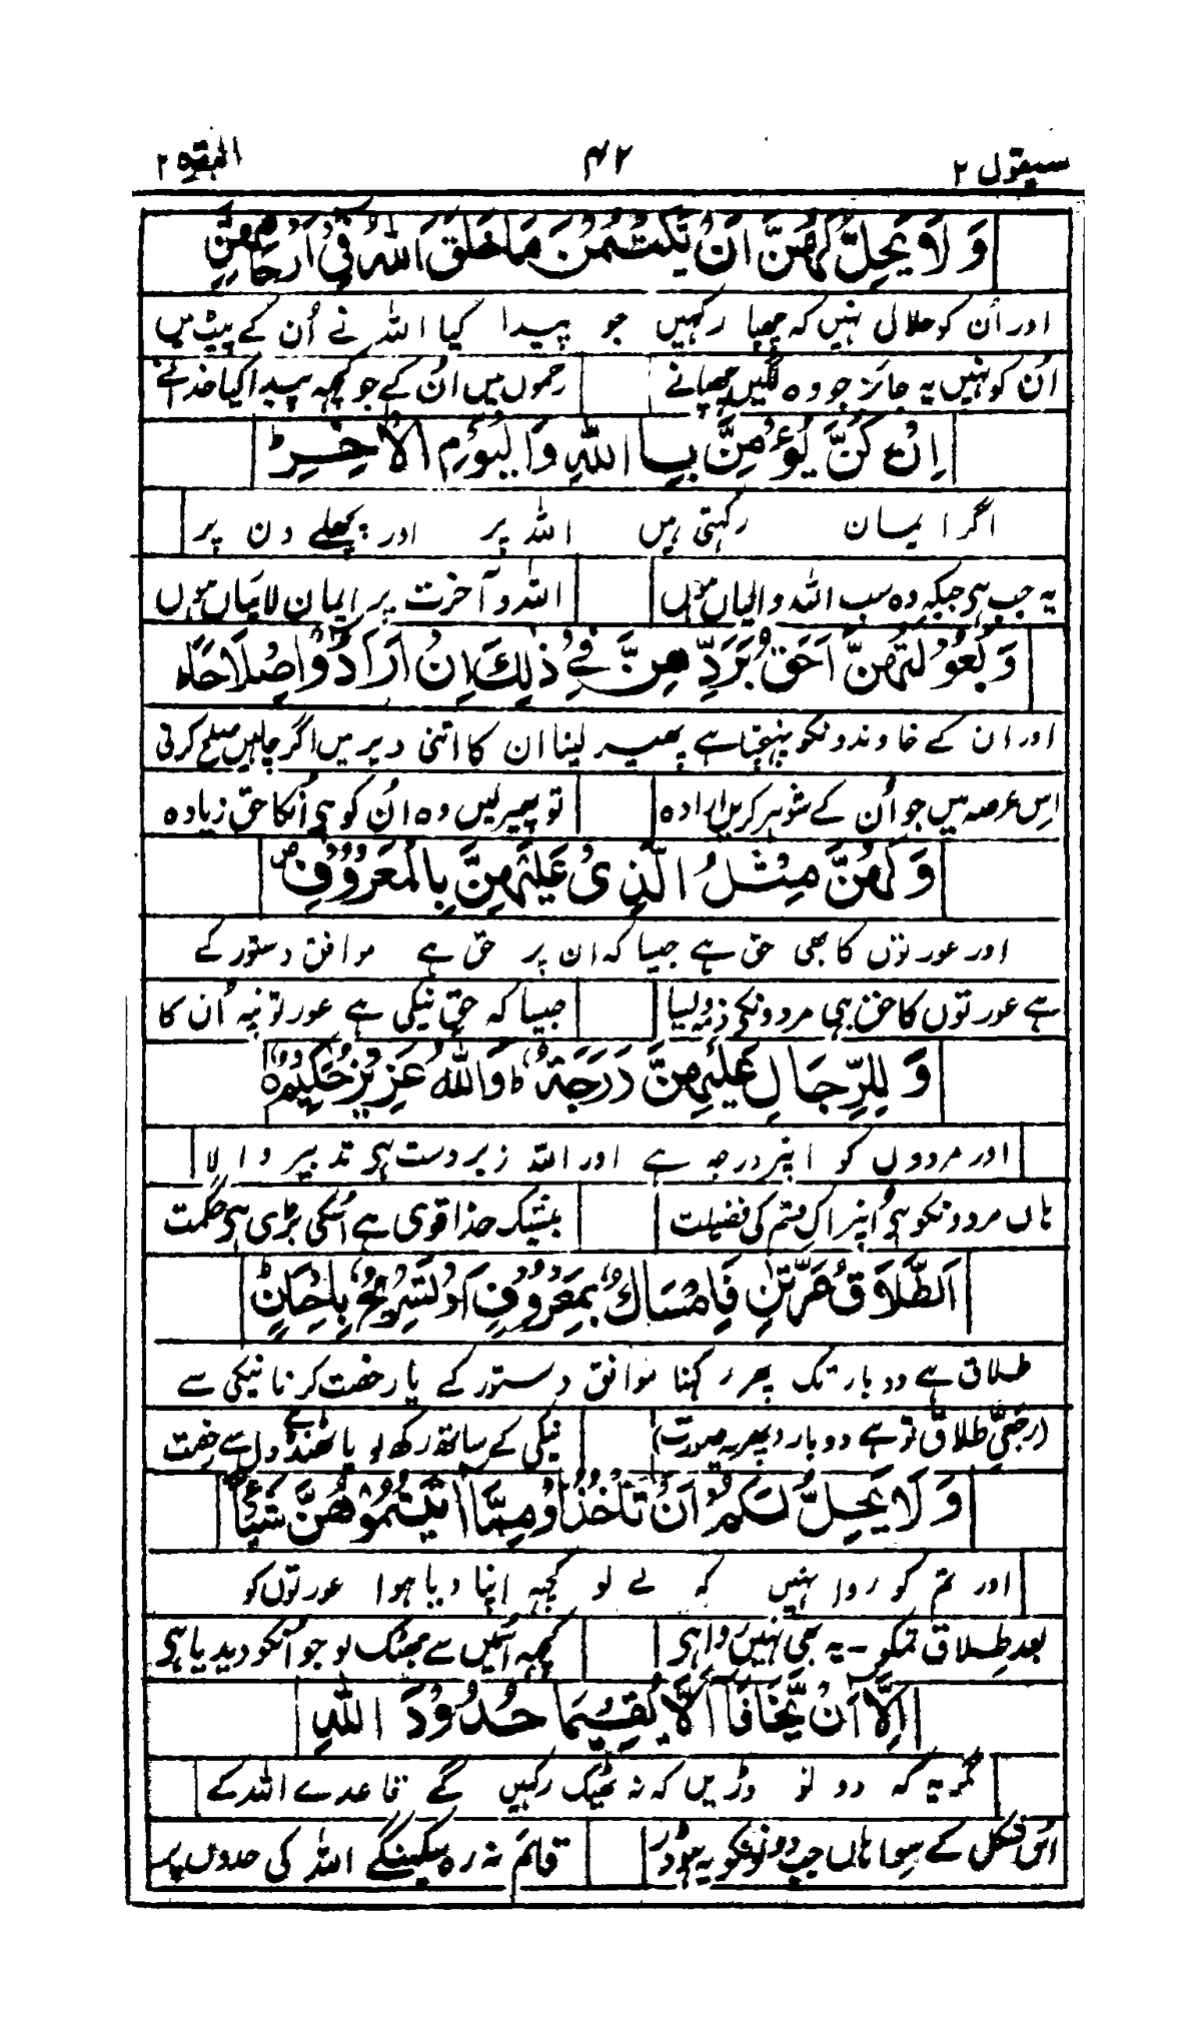 سیقول ۲ ۴۲ البقرہ ۲
وَلَا يَحِلُّ لَهُنَّ اَنْ يَّكْتُمْنَ مَا خَلَقَ اللّٰهُ فِيْٓ اَرْحَامِهِنَّ
اور اُن کو حلال نہیں کہ چھپا رکھیں جو پیدا کیا اللہ نے اُن کے پیٹ میں
اُن کو نہیں یہ جائز جو وہ لگیں چھپانے رحموں میں اُن کے جو کچھہ پیدا کیا خدا نے
اِنْ كُنَّ يُؤْمِنَّ بِاللّٰهِ وَالْيَوْمِ الْاٰخِرِ ط
اگر ایمان رکہتی ہیں اللہ پر اور پچھلے دن پر
یہ جب ہی جبکہ وہ سب اللہ والیاں ہوں اللہ و آخرت پر ایمان لائیاں ہوں
وَبُعُوْلَتُهُنَّ اَحَقُّ بِرَدِّهِنَّ فِيْ ذٰلِكَ اِنْ اَرَادُوْٓا اِصْلَاحًا ط
اور ان کے خاوندونکو پہنچتا ہے پھیر لینا ان کا اتنی دیر میں اگر چاہیں صلح کرنی
اِس عرصہ میں جو اُن کے شوہر کریں ارادہ تو پھیر لیں وہ اُن کو ہی اُنکا حق زیادہ
وَلَهُنَّ مِثْلُ الَّذِيْ عَلَيْهِنَّ بِالْمَعْرُوْفِ ص
اور عورتوں کا بھی حق ہے جیسا کہ ان پر حق ہے موافق دستور کے
ہے عورتوں کا حق بھی مردونکے ذمہ ایسا جیسا کہ حق نیکی ہے عورتونپہ اُن کا
وَلِلرِّجَالِ عَلَيْهِنَّ دَرَجَةٌ ط وَاللّٰهُ عَزِيْزٌ حَكِيْمٌ ہ
اور مردوں کو اپنر درجہ ہے اور اللہ زبردست ہی تدبیر والا
ہاں مردونکو ہی اُنپر اک قسم کی فضیلت بیشک خدا قوی ہے اُسکی بڑی ہی حکمت
اَلطَّلَاقُ مَرَّتٰنِ فَاِمْسَاكٌ بِمَعْرُوْفٍ اَوْ تَسْرِيْحٌ بِاِحْسَانٍ ط
طلاق ہے دو بار تک پھر رکہنا موافق دستور کے یا رخصت کرنا نیکی سے
(رجعی طلاق تو ہے دو بار پھر یہ صورت) نیکی کے ساتھ رکھ لو یا ٹھنڈے دل سے رخصت
وَلَا يَحِلُّ لَكُمْ اَنْ تَاْخُذُوْا مِمَّآ اٰتَيْتُمُوْهُنَّ شَيْـًٔا
اور تم کو روا نہیں کہ لے لو کچھہ اپنا دیا ہوا عورتوں کو
بعد طلاق تمکو - یہ بھی نہیں روا ہی کچھہ اُسمیں سے جھٹک لو جو اُنکو دیدیا ہی
اِلَّآ اَنْ يَّخَافَآ اَلَّا يُقِيْمَا حُدُوْدَ اللّٰهِ
مگر یہ کہ دونو ڈریں کہ نہ ٹھیک رکہیں گے قاعدے اللہ کے
اُس شکل کے سوا ہاں جب دونونکو یہ ہو ڈر قائم نہ رہ سکینگے اللہ کی حدوں پر